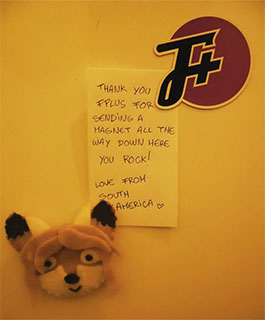 F+
THANK YOU
FPLUS FOR
SENDING A
MAGNET ALL THE
WAY DOWN HERE
YOU ROCK!
LOVE FROM
SOUTH
AMERICA ♡